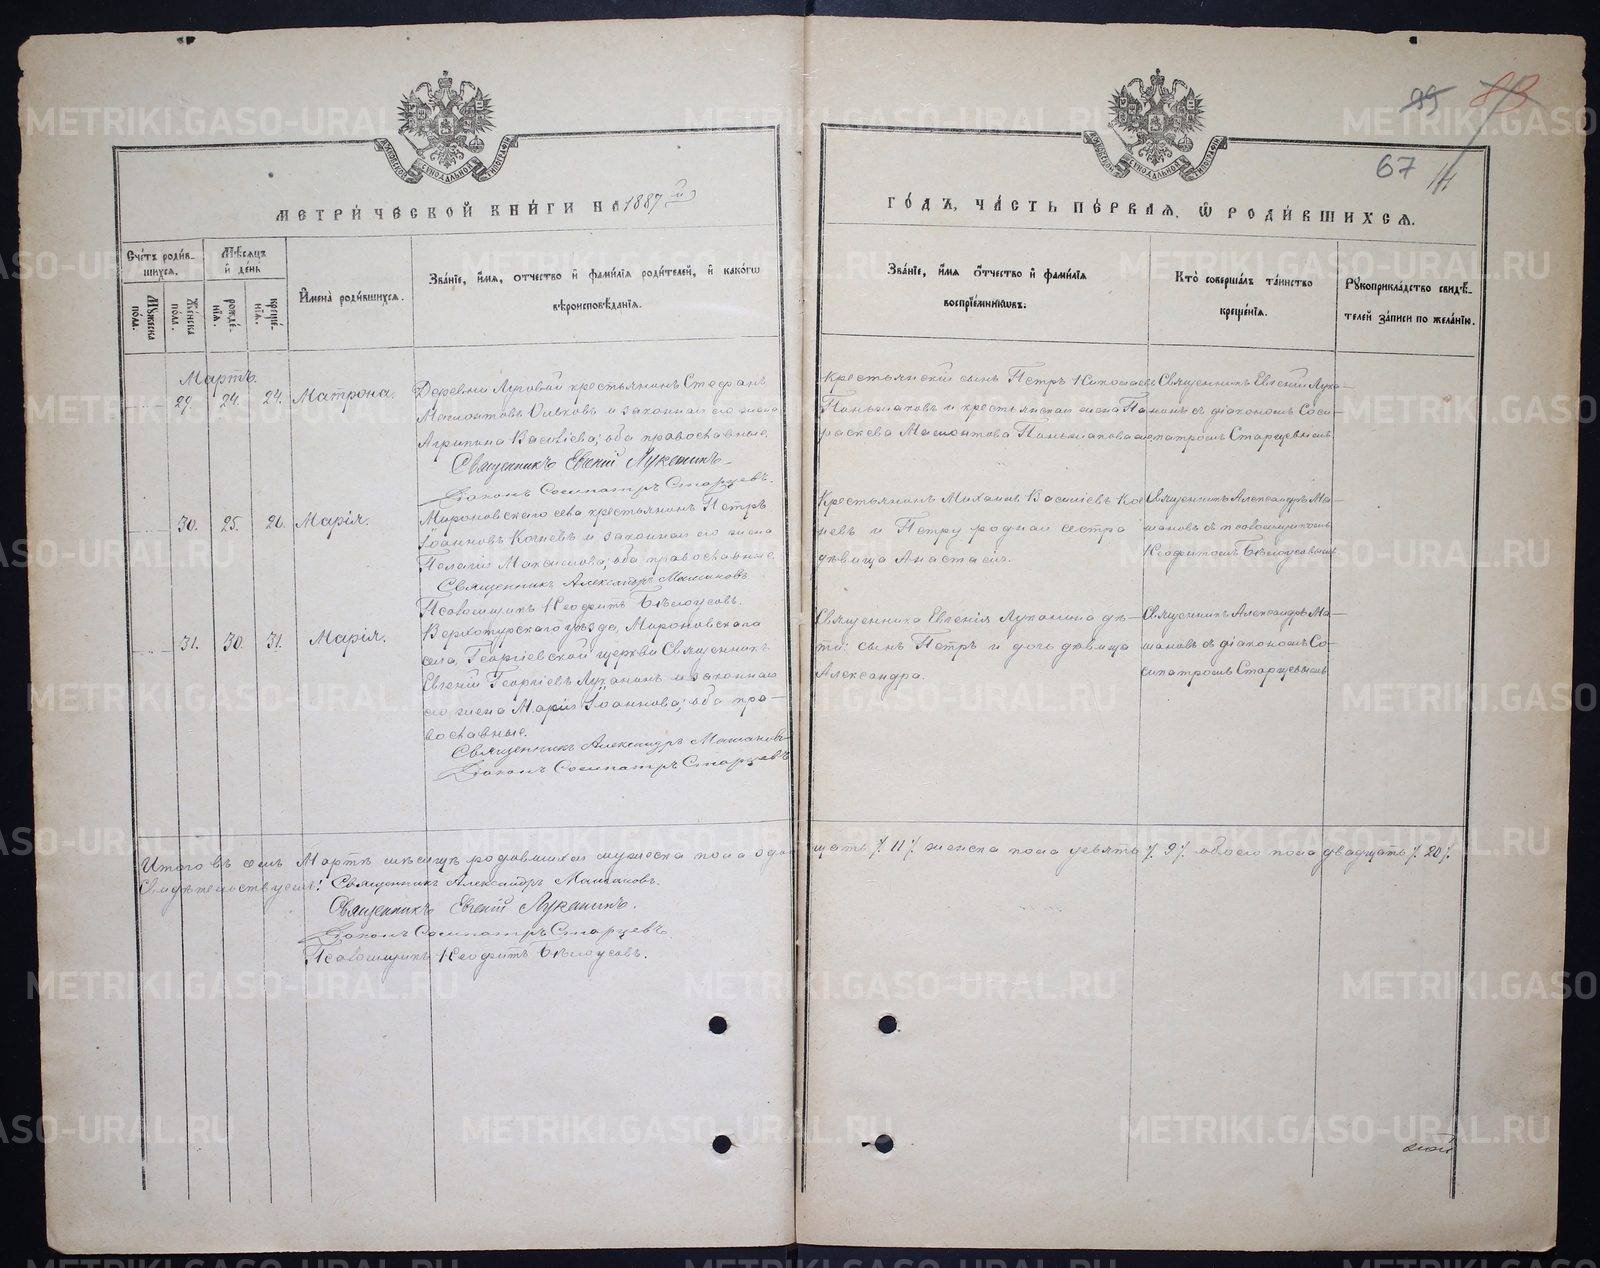 85 83
67
ДУХОВНОЙ СУНОДАЛЬНОЙ ТИПОГРАФІИ
МЕТРИ́ЧЕСКОЙ КНИ́ГИ НА 1887й
ГО́ДЪ, ЧА́СТЬ ПЕ́РВАЯ, Ѿ РОДИ́ВШИХСЯ.
Сче́тъ роди́вшихся.
Мꙋ́жеска по́ла.
Же́нска по́ла.
Мѣ́сяцъ и҆ день
рожде́нїя.
креще́нїя.
И҆мена̀ роди́вшихся.
Зва́нїе, и҆́мя, ѻ҆́тчество и҆ фамѝлїя роди́телей, и҆ како́гѡ
вѣроисповѣ́данїя.
Зва́нїе, и҆́мя ѻ҆́тчество и҆ фамѝлїя
воспрїе́мникѡвъ.
Кто̀ соверша́лъ та́инство
креще́нїя.
Рꙋкоприкла́дство свидѣ́-
телей за́писи по жела́нїю.
Мартъ.
29. 24. 24. Матрона.
Деревни Луговой крестьянинъ Стефанъ
Мамонтовъ Ольковъ и законная его жена
Агрипина Василіева; оба православные.
Священникъ Евгеній Луканинъ
Діаконъ Сосипатръ Старцевъ.
Крестьянскій сынъ Петръ Николаевъ
Паньшаковъ и крестьянская жена Па-
раскева Мамонтова Паньшакова
Священникъ Евгеній Лука-
нинъ съ діакономъ Соси-
патромъ Старцевымъ.
30. 25. 26. Марія.
Мироновскаго села крестьянинъ Петръ
Іоанновъ Кочневъ и законная его жена
Пелагія Максимова; оба православные.
Священникъ Александръ Машановъ.
Псаломщикъ Неофитъ Бѣлоусовъ.
Крестьянинъ Михаилъ Василіевъ Коч-
невъ и Петру родная сестра
дѣвица Анастасія.
Священникъ Александръ Ма-
шановъ съ псаломщикомъ
Неофитомъ Бѣлоусовымъ
31. 30. 31. Марія.
Верхотурскаго уѣзда, Мироновскаго
села, Георгіевской церкви Священникъ
Евгеній Георгіевъ Луканинъ и законная
его жена Марія Іоаннова; оба пра-
вославные.
Священникъ Александръ Машановъ
Діаконъ Сосипатръ Старцевъ
Священника Евгенія Луканина дѣ-
ти: сынъ Петръ и дочь дѣвица
Александра.
Священникъ Александръ Ма-
шановъ съ діакономъ Со-
сипатромъ Старцевымъ
Итого въ семъ Мартѣ мѣсяцѣ родившихся мужеска пола одинад-
цать /. 11 /. женска пола девять /. 9 /. обоего пола двадцать /. 20 /.
Свидѣтельствуемъ: Священникъ Александръ Машановъ.
Священникъ Евгеній Луканинъ.
Діаконъ Сосипатръ Старцевъ.
Псаломщикъ Неофитъ Бѣлоусовъ.
METRIKI.GASO-URAL.RU